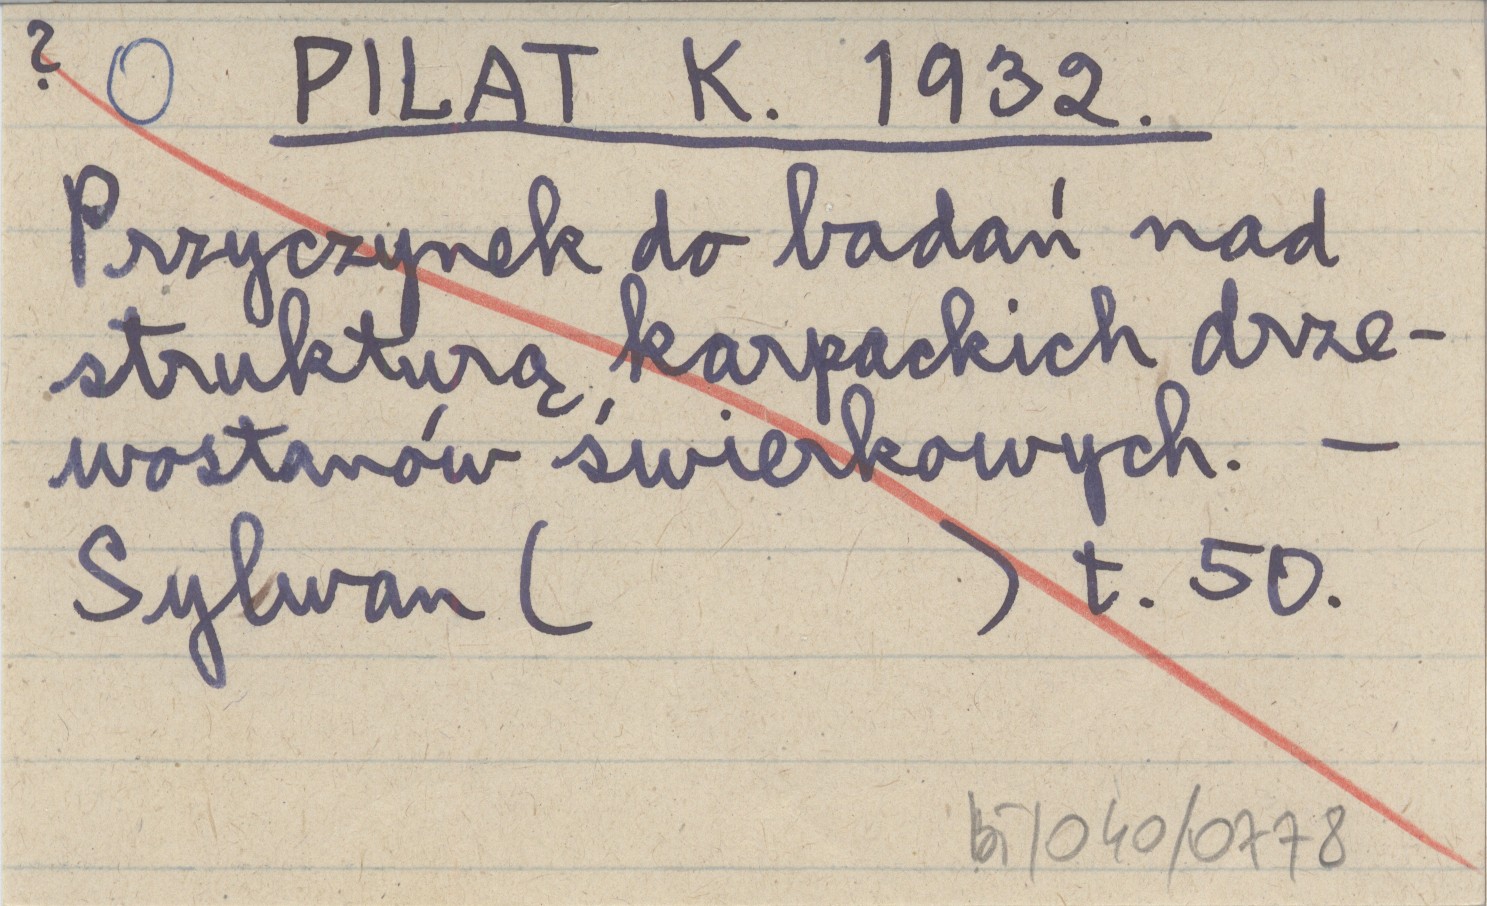 ? O PILAT K. 1932.
Przyczynek do badań nad
strukturą karpackich drze-
wostanów świerkowych. —
Sylwan ( ) t. 50.
bi/040/0778